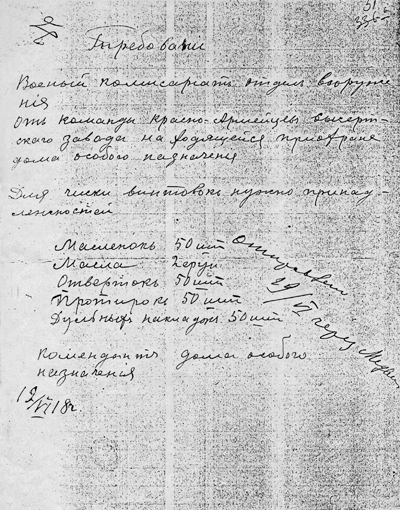 31
336
Требовани
Военый комисариат отдел вооруже
нія
Отъ команды красно-Армейцы сысерт-
скаго завода на ходящейся приохране
дома особого назначенія
Для чиски винтовокъ нужно принад
лежностей
Масленокъ 50 шт
Масла 2 фун
Отвертокъ 50 шт
Протирокъ 50 шт
Дульныхъ накладж. 50 шт
29/VI
Комендантъ дома особого
назначения
12/VI 18 г.